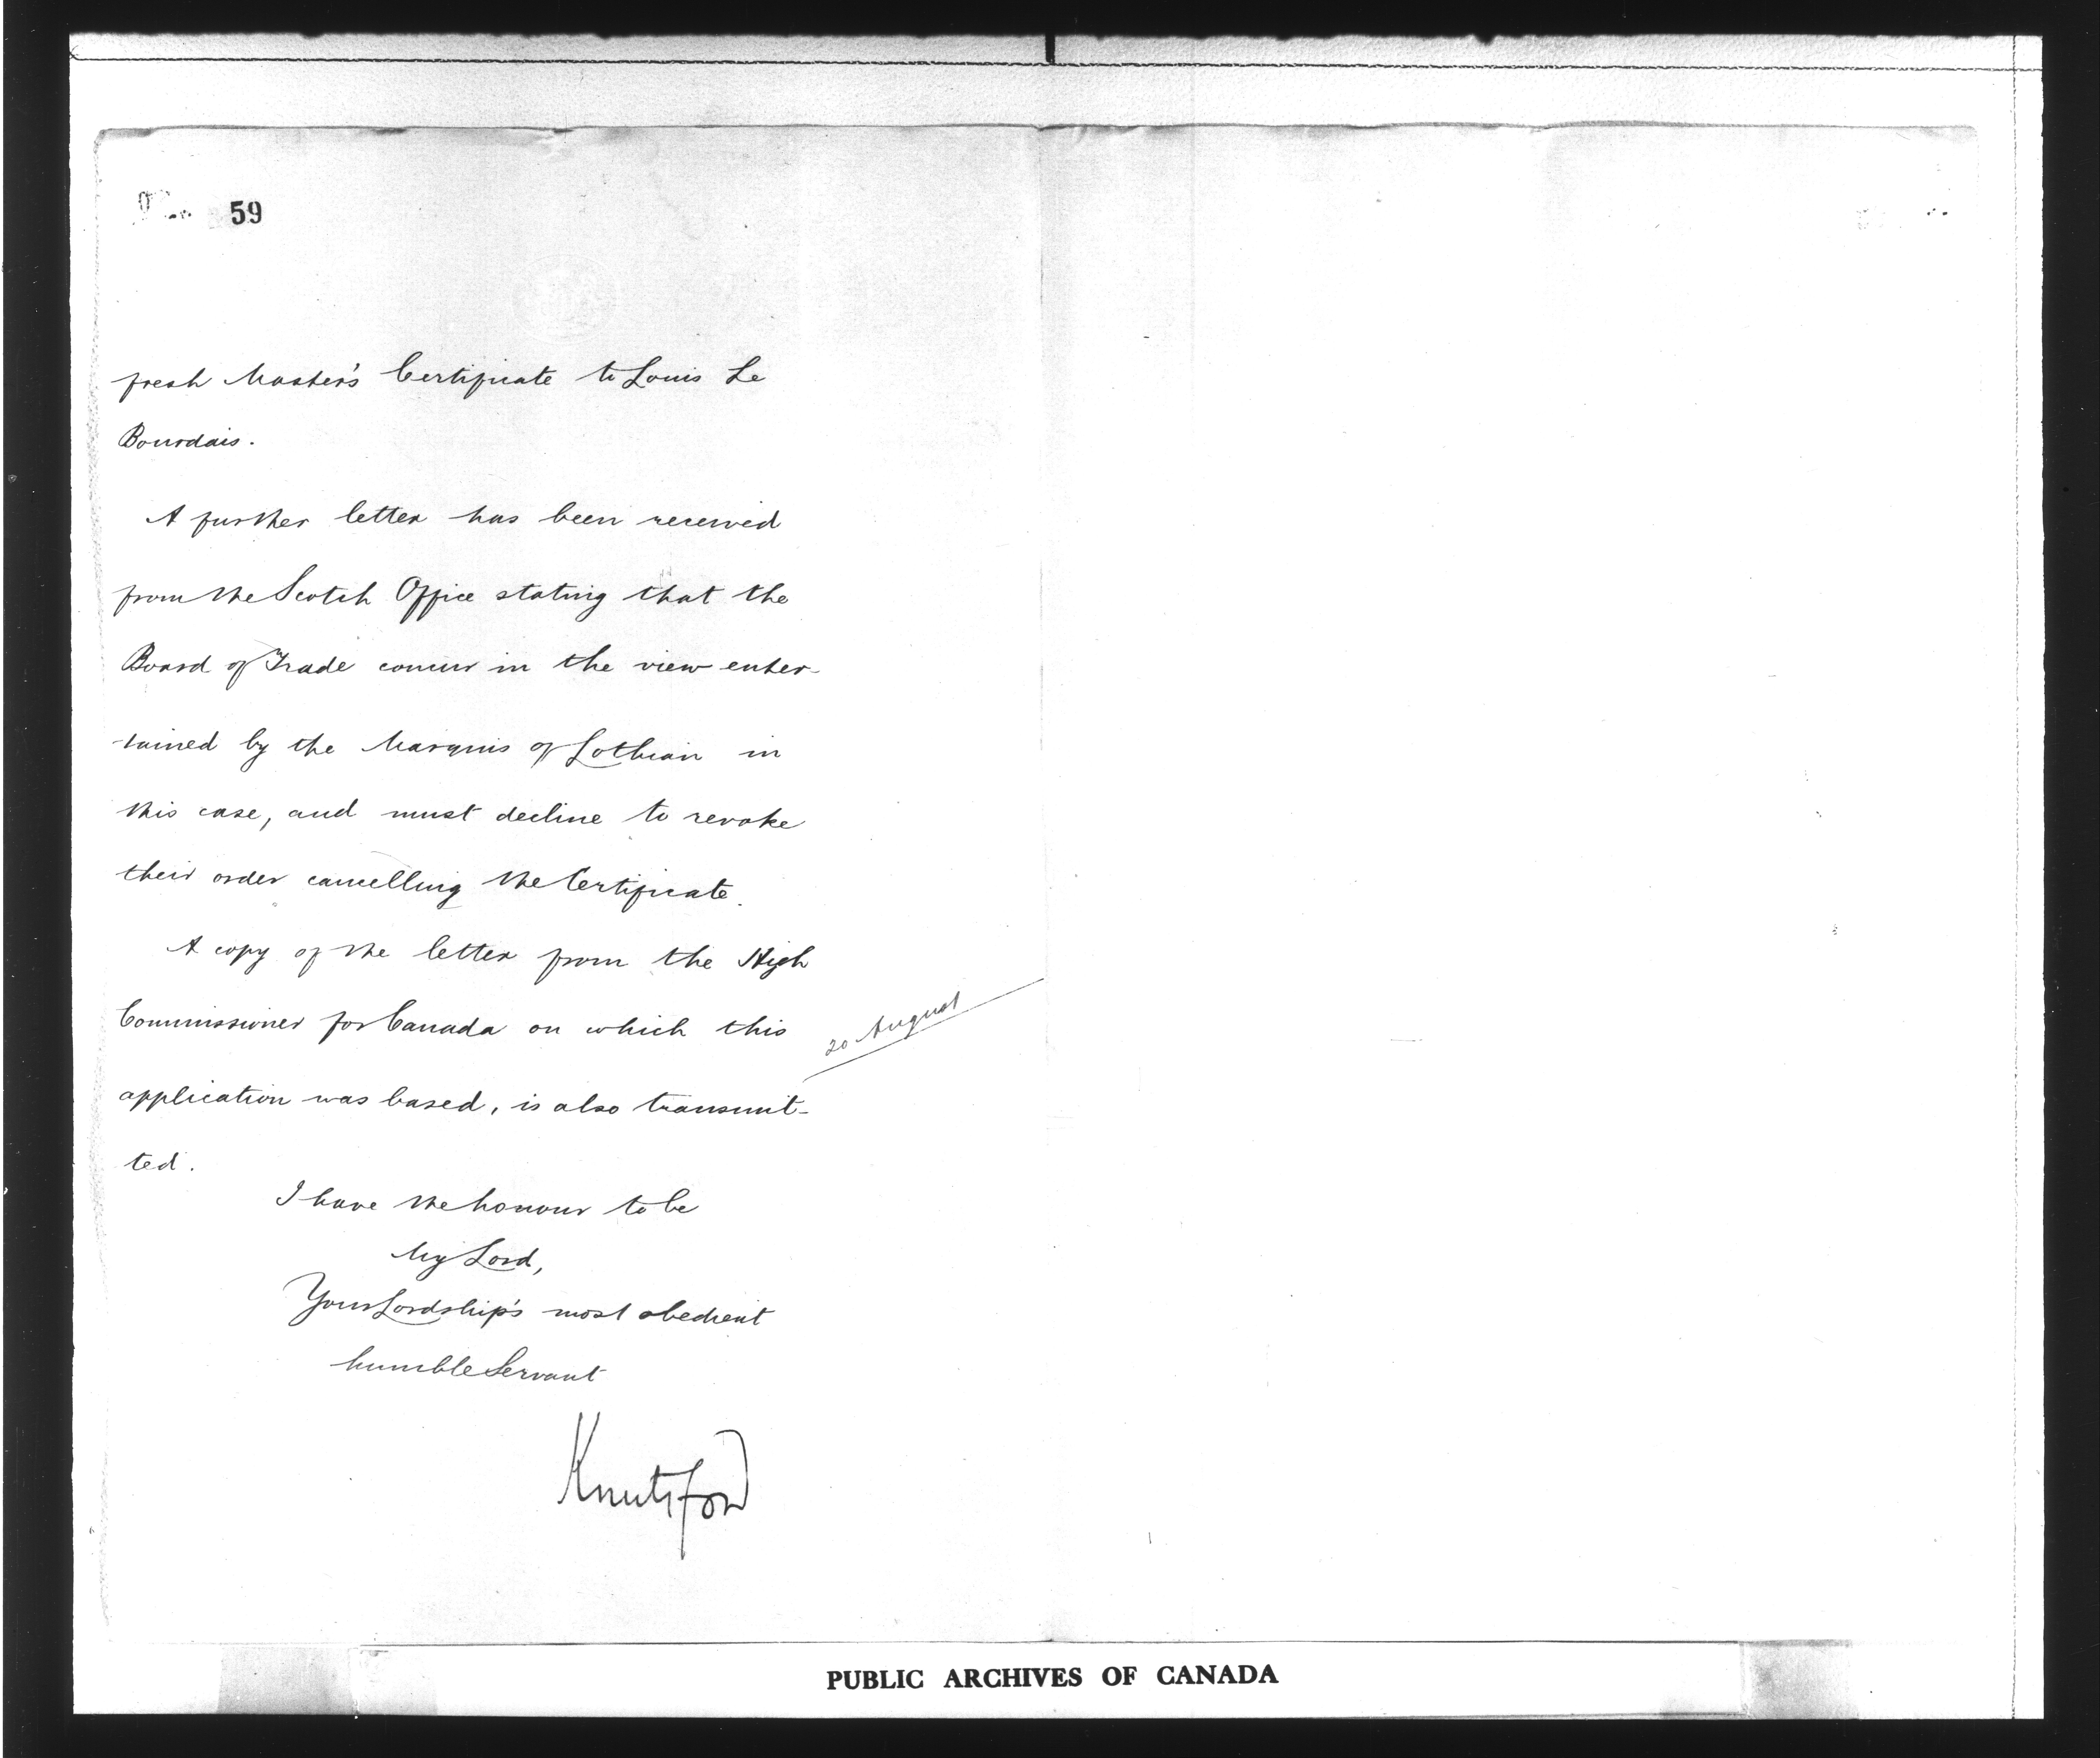 59
fresh Master's Certificate to Louis Le
Bourdais.
A further letter has been received
from the Scotch Office stating that the
Board of Trade concur in the view enter-
-tained by the Marquis of Lothian in
this case, and must decline to revoke
their order cancelling the Certificate.
A copy of the letter from the High
Commissioner for Canada on which this
20 August
application was based, is also transmit-
ted.
I have the honour to be
My Lord,
Your Lordship's most obedient
humble Servant
Knutsford
PUBLIC ARCHIVES OF CANADA